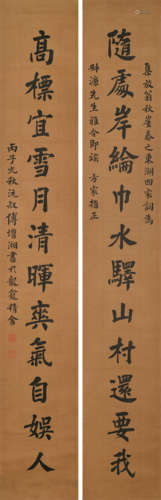 集放翁秋崖秦之東湖四家詞為
隨處岸綸巾水驛山村還要我
先生雅令即 方家指正
高標宜雪月清暉爽氣自娛人
丙子九秋沅叔傅增湘書於龍龕精舍